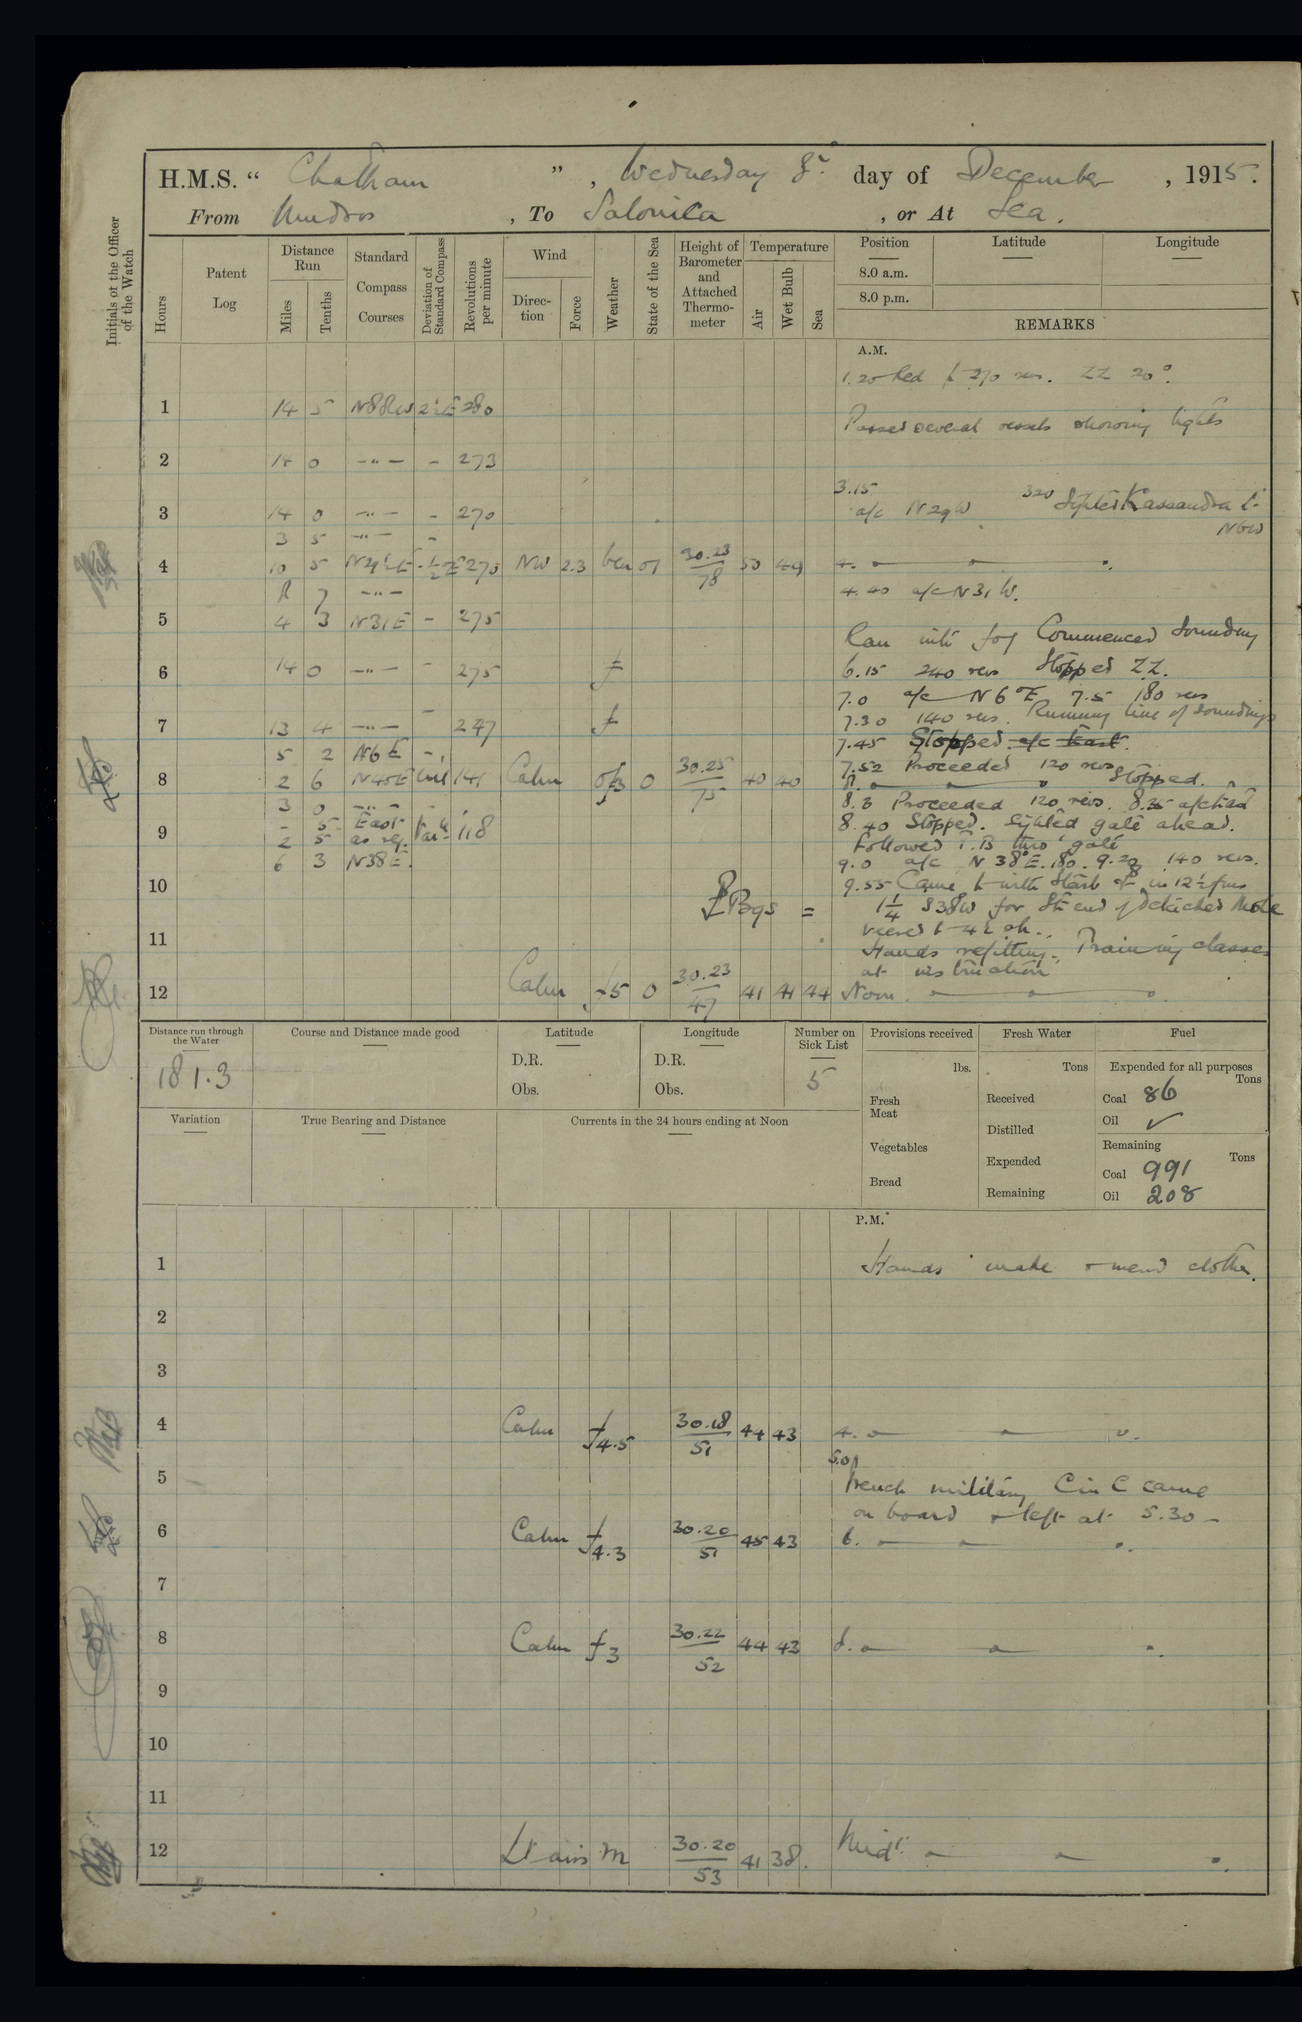 H.M.S. “ Chatham ” , Wednesday 8th day of December , 1915.
From Mudros , To Salonica , or At Sea .
Initials of the Officer of the Watch
Hours
Patent Log
Distance Run
Miles
Tenths
Standard Compass Courses
Deviation of Standard Compass
Revolutions per minute
Wind
Direction
Force
Weather
State of the Sea
Height of Barometer and Attached Thermometer
Temperature
Air
Wet Bulb
Sea
Position
8.0 a.m.
8.0 p.m.
Latitude
Longitude
REMARKS
A.M.
1.20 Red to 270 revs. ZZ 20°.
1 14 5 N88W 2½E 280
Passed several vessels showing lights
2 14 0 -"- - 273
3.15
3 14 0 -"- - 270
a/c N29W 320 Sighted Kassandra Lt
N6W
3 5 -"- -
4 10 5 270 NW 2.3 bcm 01 30.23/78 50 49 4.
8 7 -"-
4.40 a/c N31W.
5 4 3 N31E - 275
Ran into fog Commenced Sounding
6 14 0 -"- - 275 f 6.15 240 revs Stopped ZZ.
7.0 a/c N6°E 7.5 180 revs
7 13 4 -"- - 247 f 7.30 140 revs. Running line of soundings
7.45 Stopped. a/c East.
5 2 N6E -
7.52 Proceeded 120 revs
8 2 6 N45E 141 Calm of3 0 30.25/75 40 40 8. Stopped.
3 0 -"- -
8.3 Proceeded 120 revs. 8.35
- 5 East
9 2 5 as req. 118 8.40 Stopped. Sighted gate ahead.
Followed T.B thro' gate
6 3 N38E.
9.0 a/c N38°E. 180. 9.20 140 revs.
10 9.55 Came to with Starb in 12½ fms
PBgs = 1¼ S38W for Sth end of Detached Mole
11 veered to 4½ sh.
Hands refitting. Training classes
at instruction
12 Calm f5 0 30.23/47 41 41 44 Noon.
Distance run through the Water
181.3
Course and Distance made good
Latitude
D.R.
Obs.
Longitude
D.R.
Obs.
Number on Sick List
5
Provisions received
lbs.
Fresh Meat
Vegetables
Bread
Fresh Water
Tons
Received
Distilled
Expended
Remaining
Fuel
Expended for all purposes
Tons
Coal 86
Oil ✓
Remaining
Tons
Coal 991
Oil 208
Variation
True Bearing and Distance
Currents in the 24 hours ending at Noon
P.M.
1 Hands make & mend clothes.
2
3
4 Calm f4.5 30.18/51 44 43 4.
5.0
5 French military C in C came
on board & left at 5.30
6 Calm f4.3 30.20/51 45 43 6.
7
8 Calm f3 30.22/52 44 43 8.
9
10
11
12 Lt airs m 30.20/53 41 38. Midt.